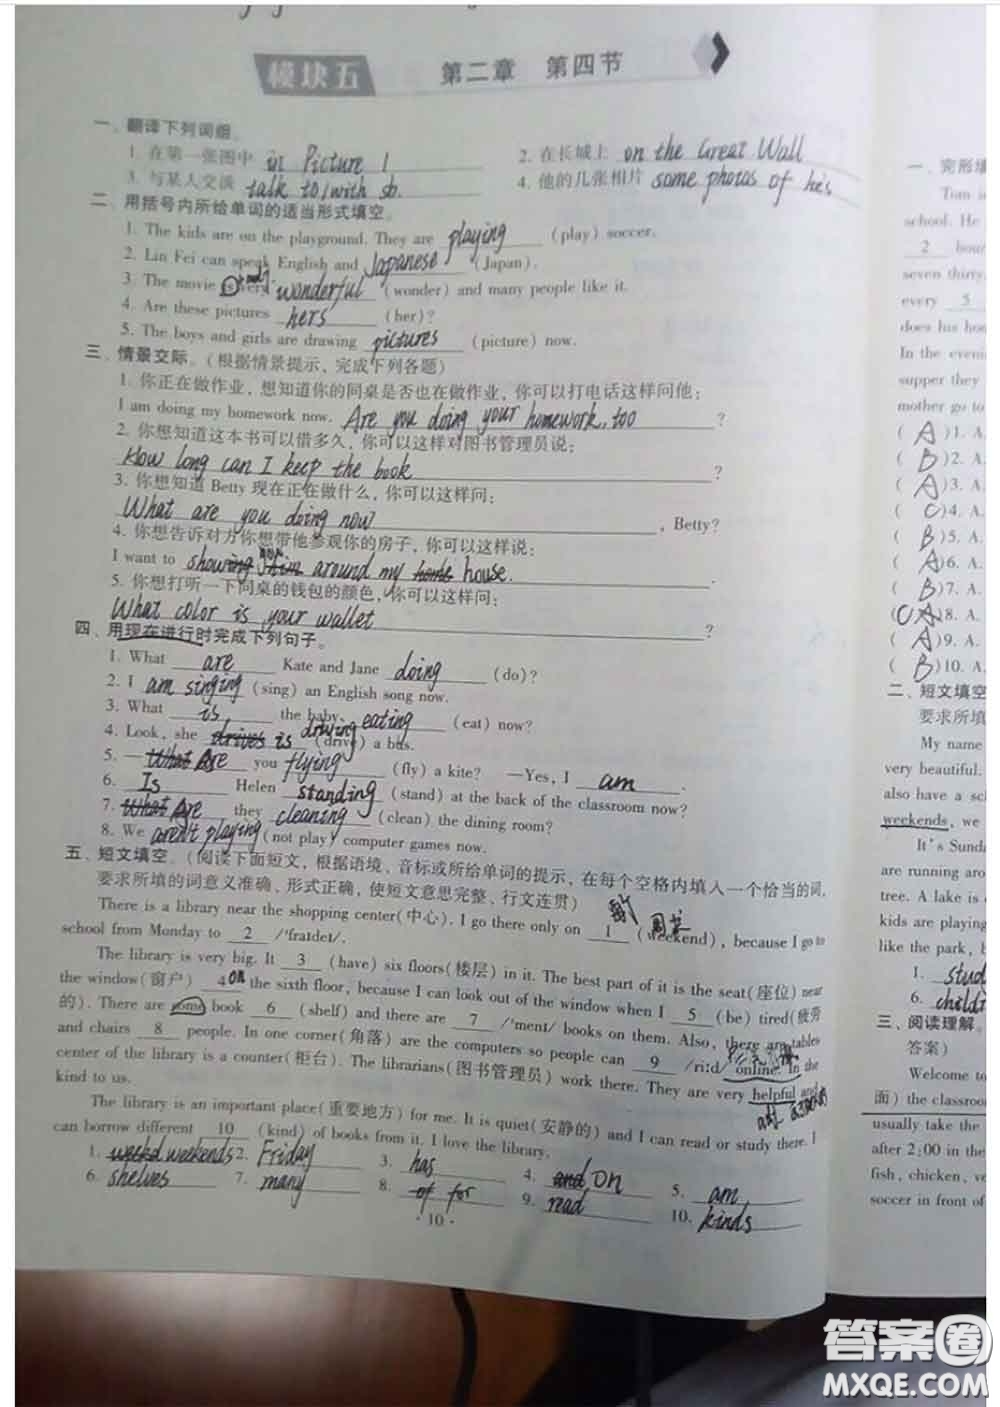 模块五 第二章 第四节
一、翻译下列词组。
1. 在第一张图中 in Picture 1 2. 在长城上 on the Great Wall
3. 与某人交谈 talk to/with sb. 4. 他的几张相片 some photos of his
二、用括号内所给单词的适当形式填空。
1. The kids are on the playground. They are playing (play) soccer.
2. Lin Fei can speak English and Japanese (Japan).
3. The movie is very wonderful (wonder) and many people like it.
4. Are these pictures hers (her)?
5. The boys and girls are drawing pictures (picture) now.
三、情景交际。(根据情景提示，完成下列各题)
1. 你正在做作业，想知道你的同桌是否也在做作业，你可以打电话这样问他：
I am doing my homework now. Are you doing your homework, too ?
2. 你想知道这本书可以借多久，你可以这样对图书管理员说：
How long can I keep the book ?
3. 你想知道 Betty 现在正在做什么，你可以这样问：
What are you doing now , Betty?
4. 你想告诉对方你想带他参观你的房子，你可以这样说：
I want to show around my house.
5. 你想打听一下同桌的钱包的颜色，你可以这样问：
What color is your wallet ?
四、用现在进行时完成下列句子。
1. What are Kate and Jane doing (do)?
2. I am singing (sing) an English song now.
3. What is the baby eating (eat) now?
4. Look, she drives is driving (drive) a bus.
5. — What Are you flying (fly) a kite? —Yes, I am .
6. Is Helen standing (stand) at the back of the classroom now?
7. What Are they cleaning (clean) the dining room?
8. We aren't playing (not play) computer games now.
五、短文填空。(阅读下面短文，根据语境、音标或所给单词的提示，在每个空格内填入一个恰当的词，
要求所填的词意义准确、形式正确，使短文意思完整、行文连贯)
There is a library near the shopping center(中心). I go there only on 1 (weekend), because I go to
school from Monday to 2 /'fraɪdeɪ/.
The library is very big. It 3 (have) six floors(楼层) in it. The best part of it is the seat(座位) near
the window(窗户) 4 on the sixth floor, because I can look out of the window when I 5 (be) tired(疲劳
的). There are some book 6 (shelf) and there are 7 /'menɪ/ books on them. Also, there are tables
and chairs 8 people. In one corner(角落) are the computers so people can 9 /ri:d/ online. In the
center of the library is a counter(柜台). The librarians(图书管理员) work there. They are very helpful and
kind to us.
The library is an important place(重要地方) for me. It is quiet(安静的) and I can read or study there. I
can borrow different 10 (kind) of books from it. I love the library.
1. weekends 2. Friday 3. has 4. and on 5. am
6. shelves 7. many 8. of for 9. read 10. kinds
· 10 ·
一、完形填
Tom is
school. He
2 hour
seven thirty.
every 5
does his hom
In the eveni
supper they
mother go to
( A )1. A.
( B )2. A.
( A )3. A.
( C )4. A.
( B )5. A.
( A )6. A.
( B )7. A.
( C A )8. A.
( A )9. A.
( B )10. A.
二、短文填空
要求所填
My name
very beautiful.
also have a sc
weekends, we
It's Sunda
are running aro
tree. A lake is
kids are playing
like the park, b
1. stud
6. childr
三、阅读理解。
答案)
Welcome to
面) the classroom
usually take the
after 2:00 in the
fish, chicken, ve
soccer in front of
答案圈
MXQE.COM